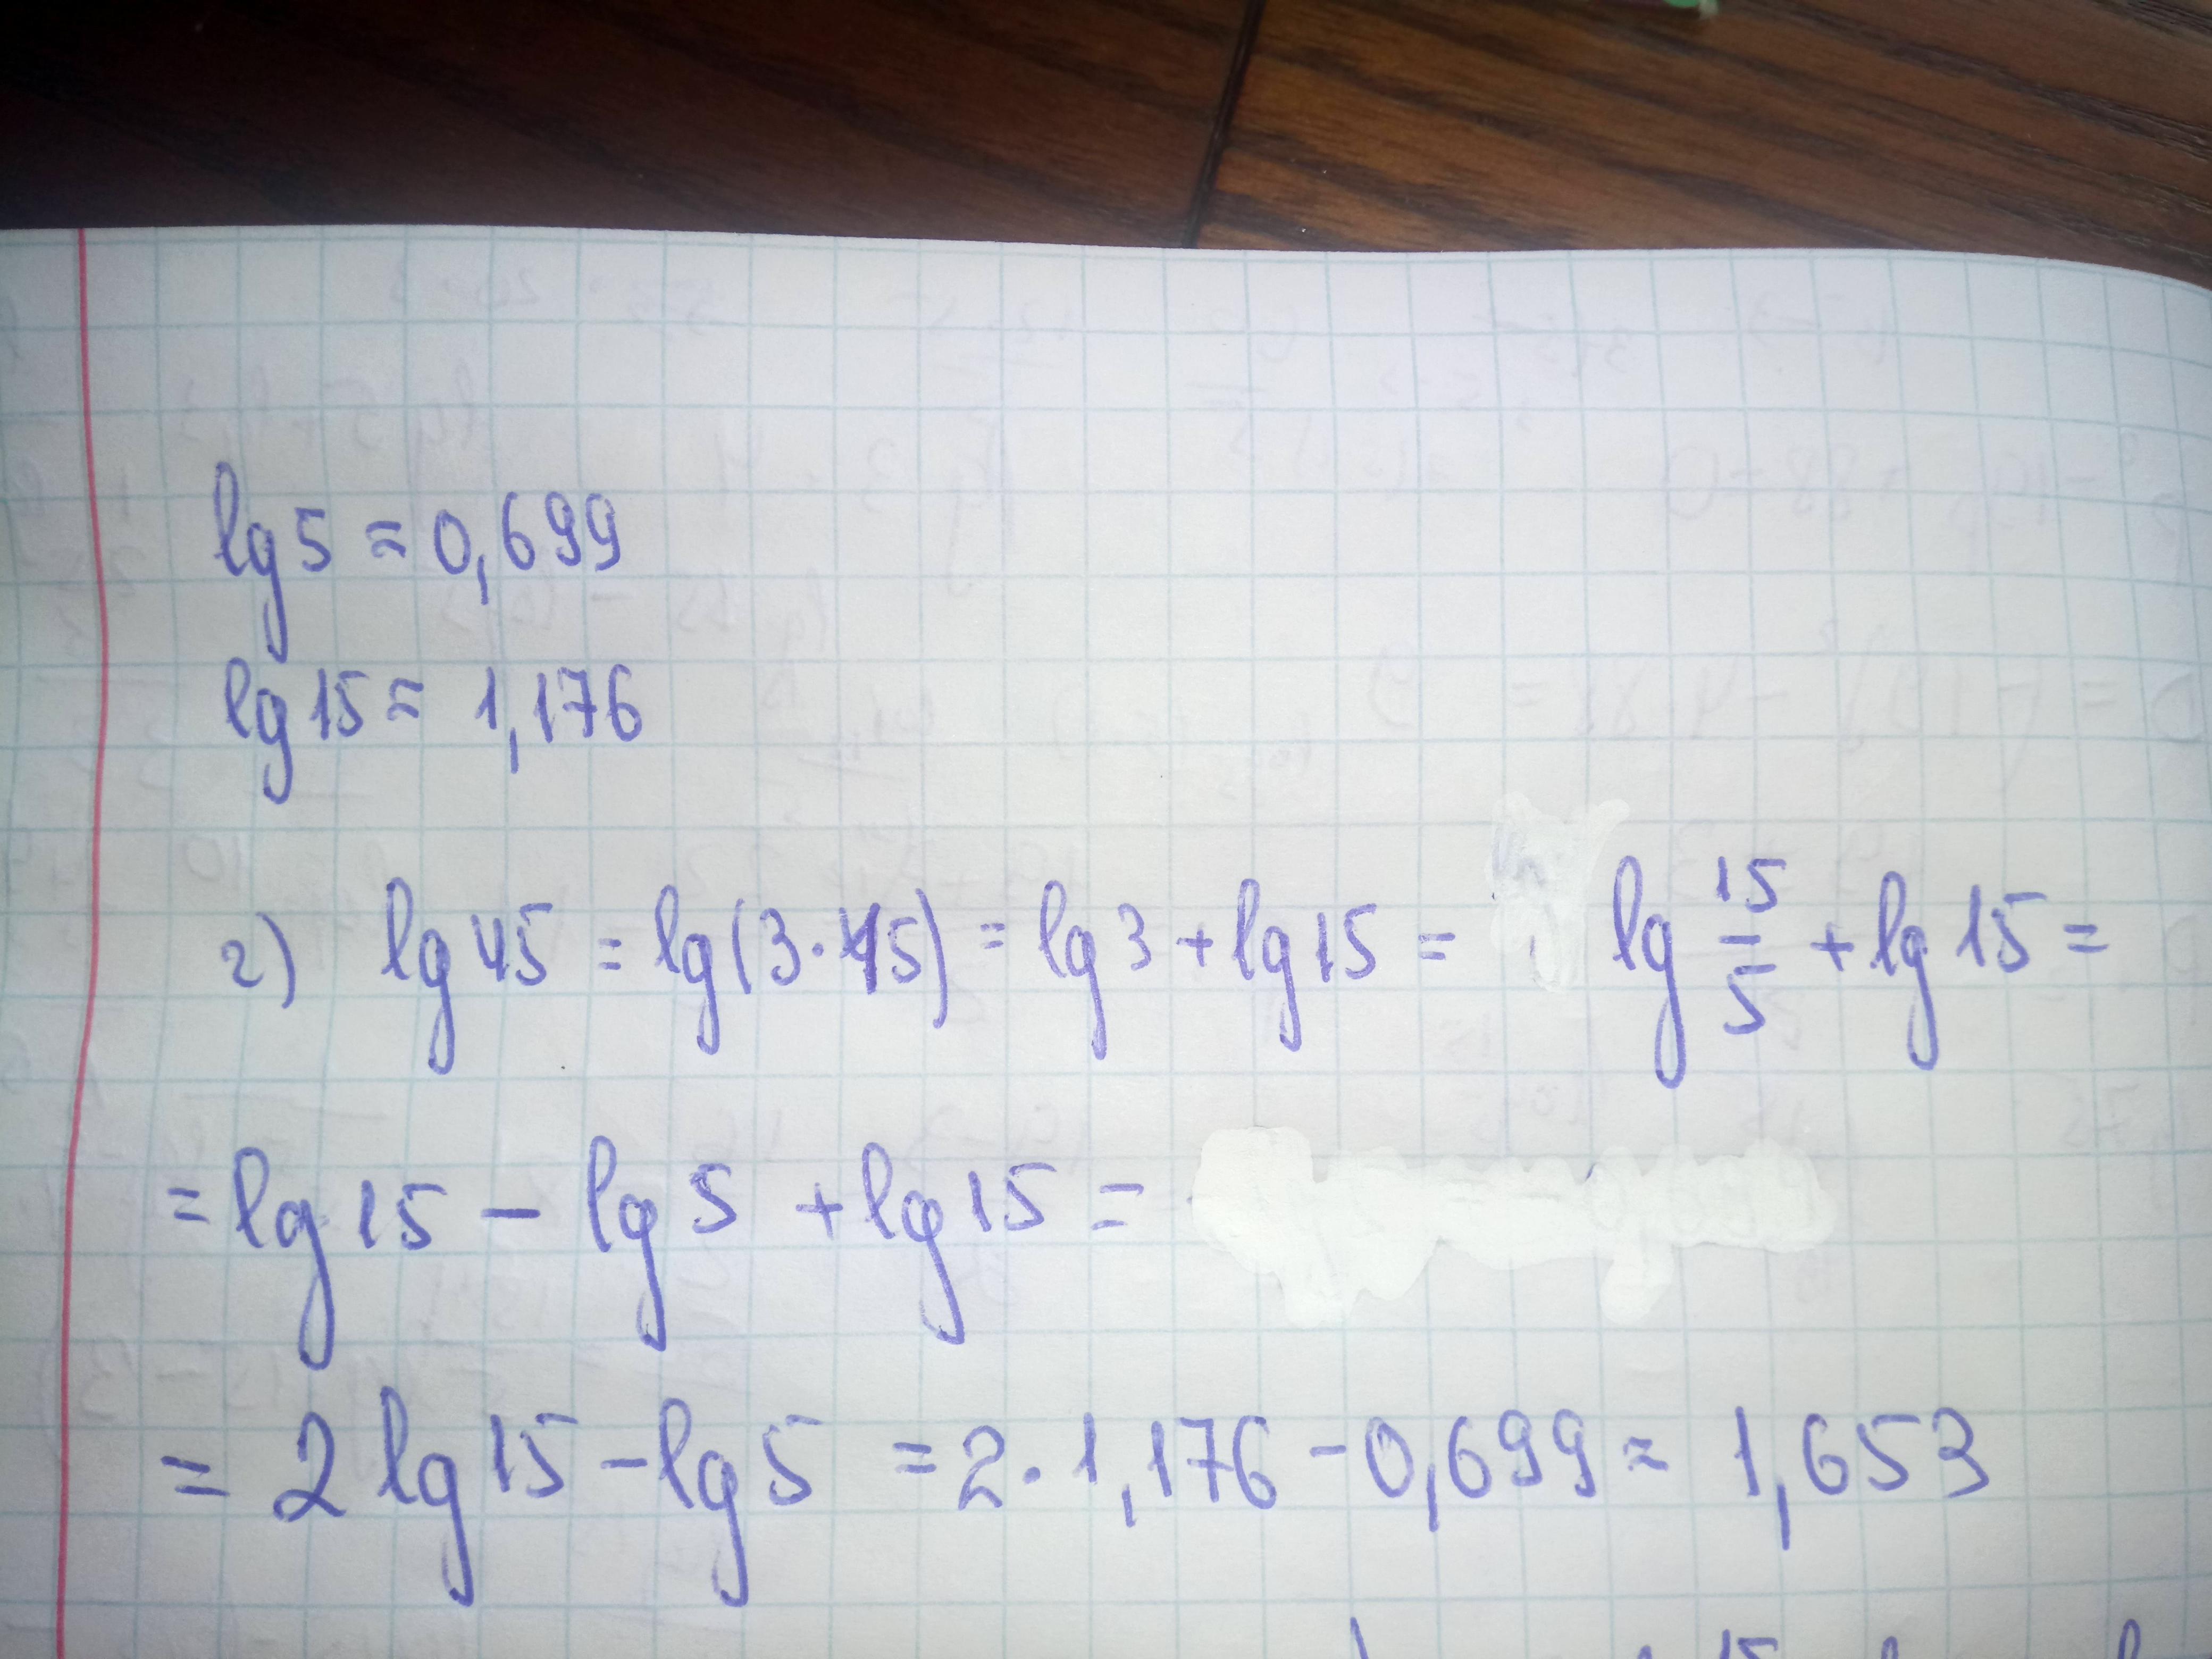 lg 5 = 0,699
lg 15 = 1,176
г) lg 45 = lg(3·15) = lg 3 + lg 15 = lg 15/5 + lg 15 =
= lg 15 - lg 5 + lg 15 =
= 2 lg 15 - lg 5 = 2·1,176 - 0,699 = 1,653